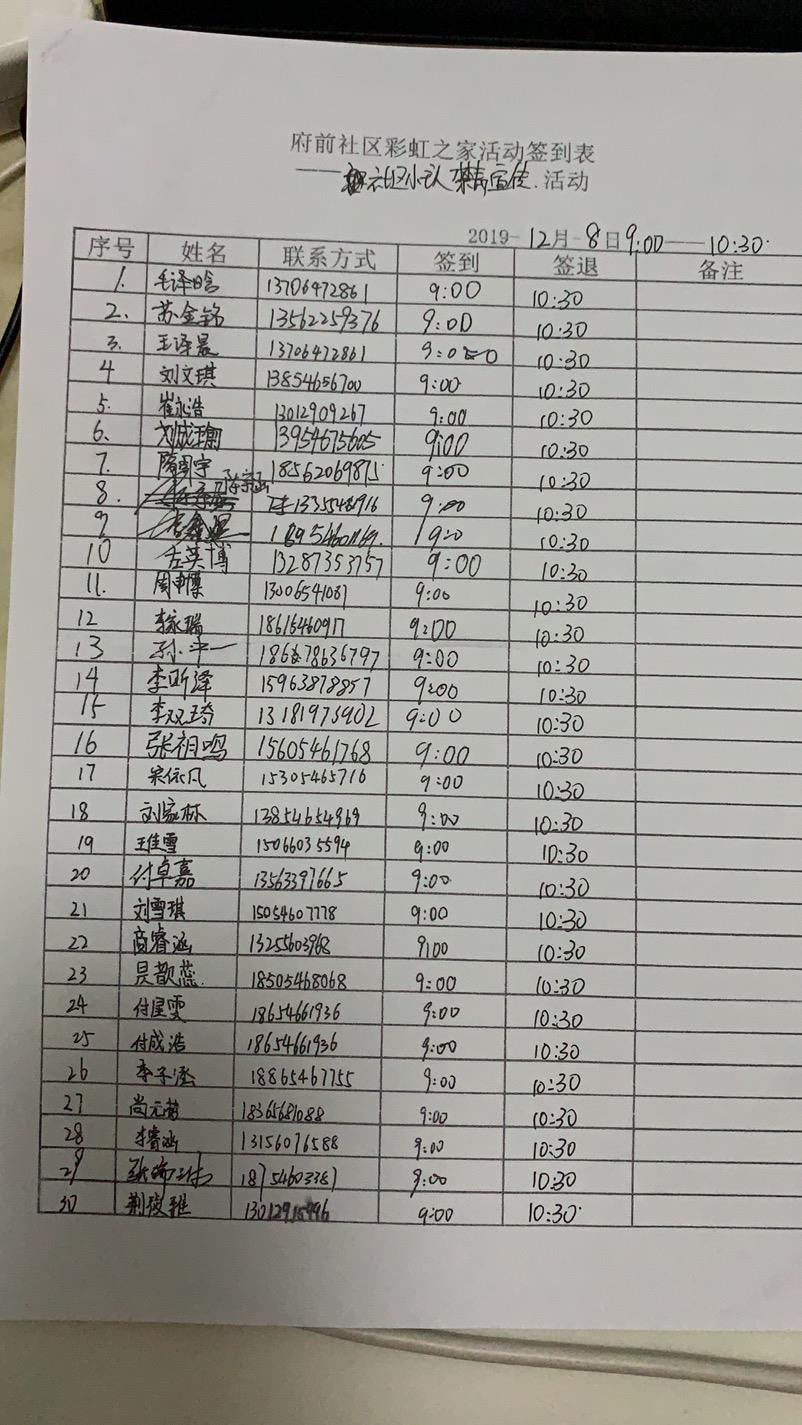 府前社区彩虹之家活动签到表
——社区小队禁毒宣传.活动
2019-12月-8日9:00——10:30
序号 姓名 联系方式 签到 签退 备注
1. 毛泽晗 13706472861 9:00 10:30
2. 苏金铭 13562259376 9:00 10:30
3. 王译晨 13706472861 10:30
4 刘文琪 13854656700 9:00 10:30
5. 崔永浩 13012909267 9:00 10:30
6. 13954675605 9:00 10:30
7. 隋阅宇 18562069875 9:00 10:30
8. 陈宗函 9:00 10:30
9 10:30
10 岳英博 13287353757 9:00 10:30
11. 周申慔 13006541087 9:00 10:30
12 李永瑞 18616460917 9:00 10:30
13 孙平一 186678636797 9:00 10:30
14 李昕泽 15963878857 9:00 10:30
15 李双琦 13181973902 9:00 10:30
16 张祖鸣 15605461768 9:00 10:30
17 宋依凡 15305465716 9:00 10:30
18 刘家林 13854654969 9:00 10:30
19 王佳雪 15066035594 9:00 10:30
20 付卓嘉 13563397665 9:00 10:30
21 刘雪琪 15054607778 9:00 10:30
22 商睿涵 13255603968 9:00 10:30
23 吴歆蕊. 18505468068 9:00 10:30
24 付星雯 18654661936 9:00 10:30
25 付成浩 18654661936 9:00 10:30
26 李子丞 18865467755 9:00 10:30
27 尚元菊 18365681088 9:00 10:30
28 李睿涵 13156076588 9:00 10:30
29 1875460338 9:00 10:30
30 荆俊雅 9:00 10:30